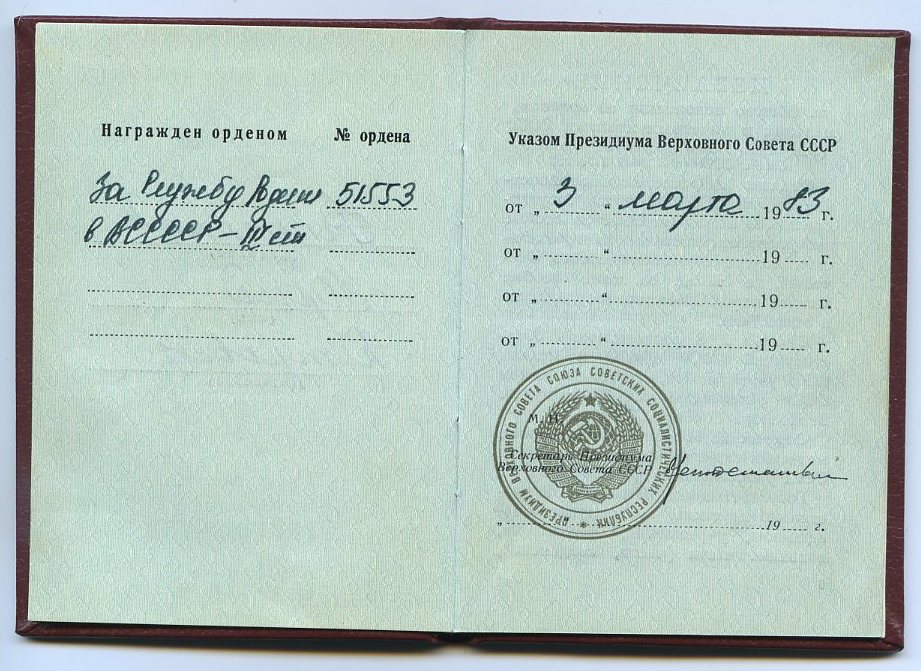 Награжден орденом № ордена
За Службу Родине 51553
в ВС СССР - III ст
Указом Президиума Верховного Совета СССР
от „ 3 “ марта 1983 г.
от „ “ 19 г.
от „ “ 19 г.
от „ “ 19 г.
ПРЕЗИДИУМ ВЕРХОВНОГО СОВЕТА СОЮЗА СОВЕТСКИХ СОЦИАЛИСТИЧЕСКИХ РЕСПУБЛИК
М. П.
Секретарь Президиума
Верховного Совета СССР
„ 19 г.